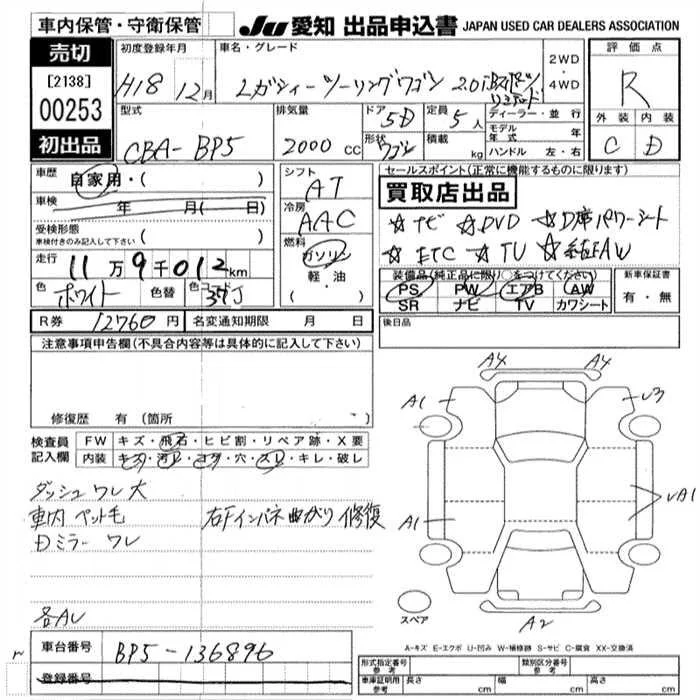 車内保管・守衛保管
JU 愛知 出品申込書 JAPAN USED CAR DEALERS ASSOCIATION
売切
[2138]
00253
初出品
初度登録年月
H18 12月
車名・グレード
レガシィーツーリングワゴン 2.0i
2WD
・
4WD
評価点
R
外装 内装
C D
型式
CBA-BP5
排気量
2000 cc
ドア
5D
形状
ワゴン
定員
5人
積載
kg
ディーラー・並行
モデル年式 年
ハンドル 左・右
車歴
自家用・( )
車検
年 月( 日)
受検形態
車検付きのみ記入して下さい ( )
走行
11万9千012km
色
ホワイト
色替
色コード
37J
シフト
AT
冷房
AAC
燃料
ガソリン
軽・油
( )
セールスポイント(正常に機能するものに限ります)
買取店出品
☆ナビ ☆DVD ☆D席パワーシート
☆ETC ☆TV ☆純正AW
装備品(純正品に限り○をつけてください)
PS PW エアB AW
SR ナビ TV カワシート
新車保証書
有・無
R券 12760円
名変通知期限 月 日
後日品
注意事項申告欄(不具合内容等は具体的に記入して下さい)
修復歴 有 (箇所
検査員
記入欄
FW キズ・飛石・ヒビ割・リペア跡・X要
内装 キズ・汚レ・コゲ・穴・スレ・キレ・破レ
ダッシュ ワレ大
車内 ペット毛 右Fインパネ曲がり 修復
Dミラー ワレ
各AU
A4 A4
A1 U3
A1 UA1
A2
スペア
A-キズ E-エクボ U-凹み W-補修跡 S-サビ C-腐食 XX-交換済
車台番号 BP5-136896
登録番号
形式指定番号
参考
類別区分番号
参考
車庫証明用
参考
長さ cm 幅 cm 高さ cm